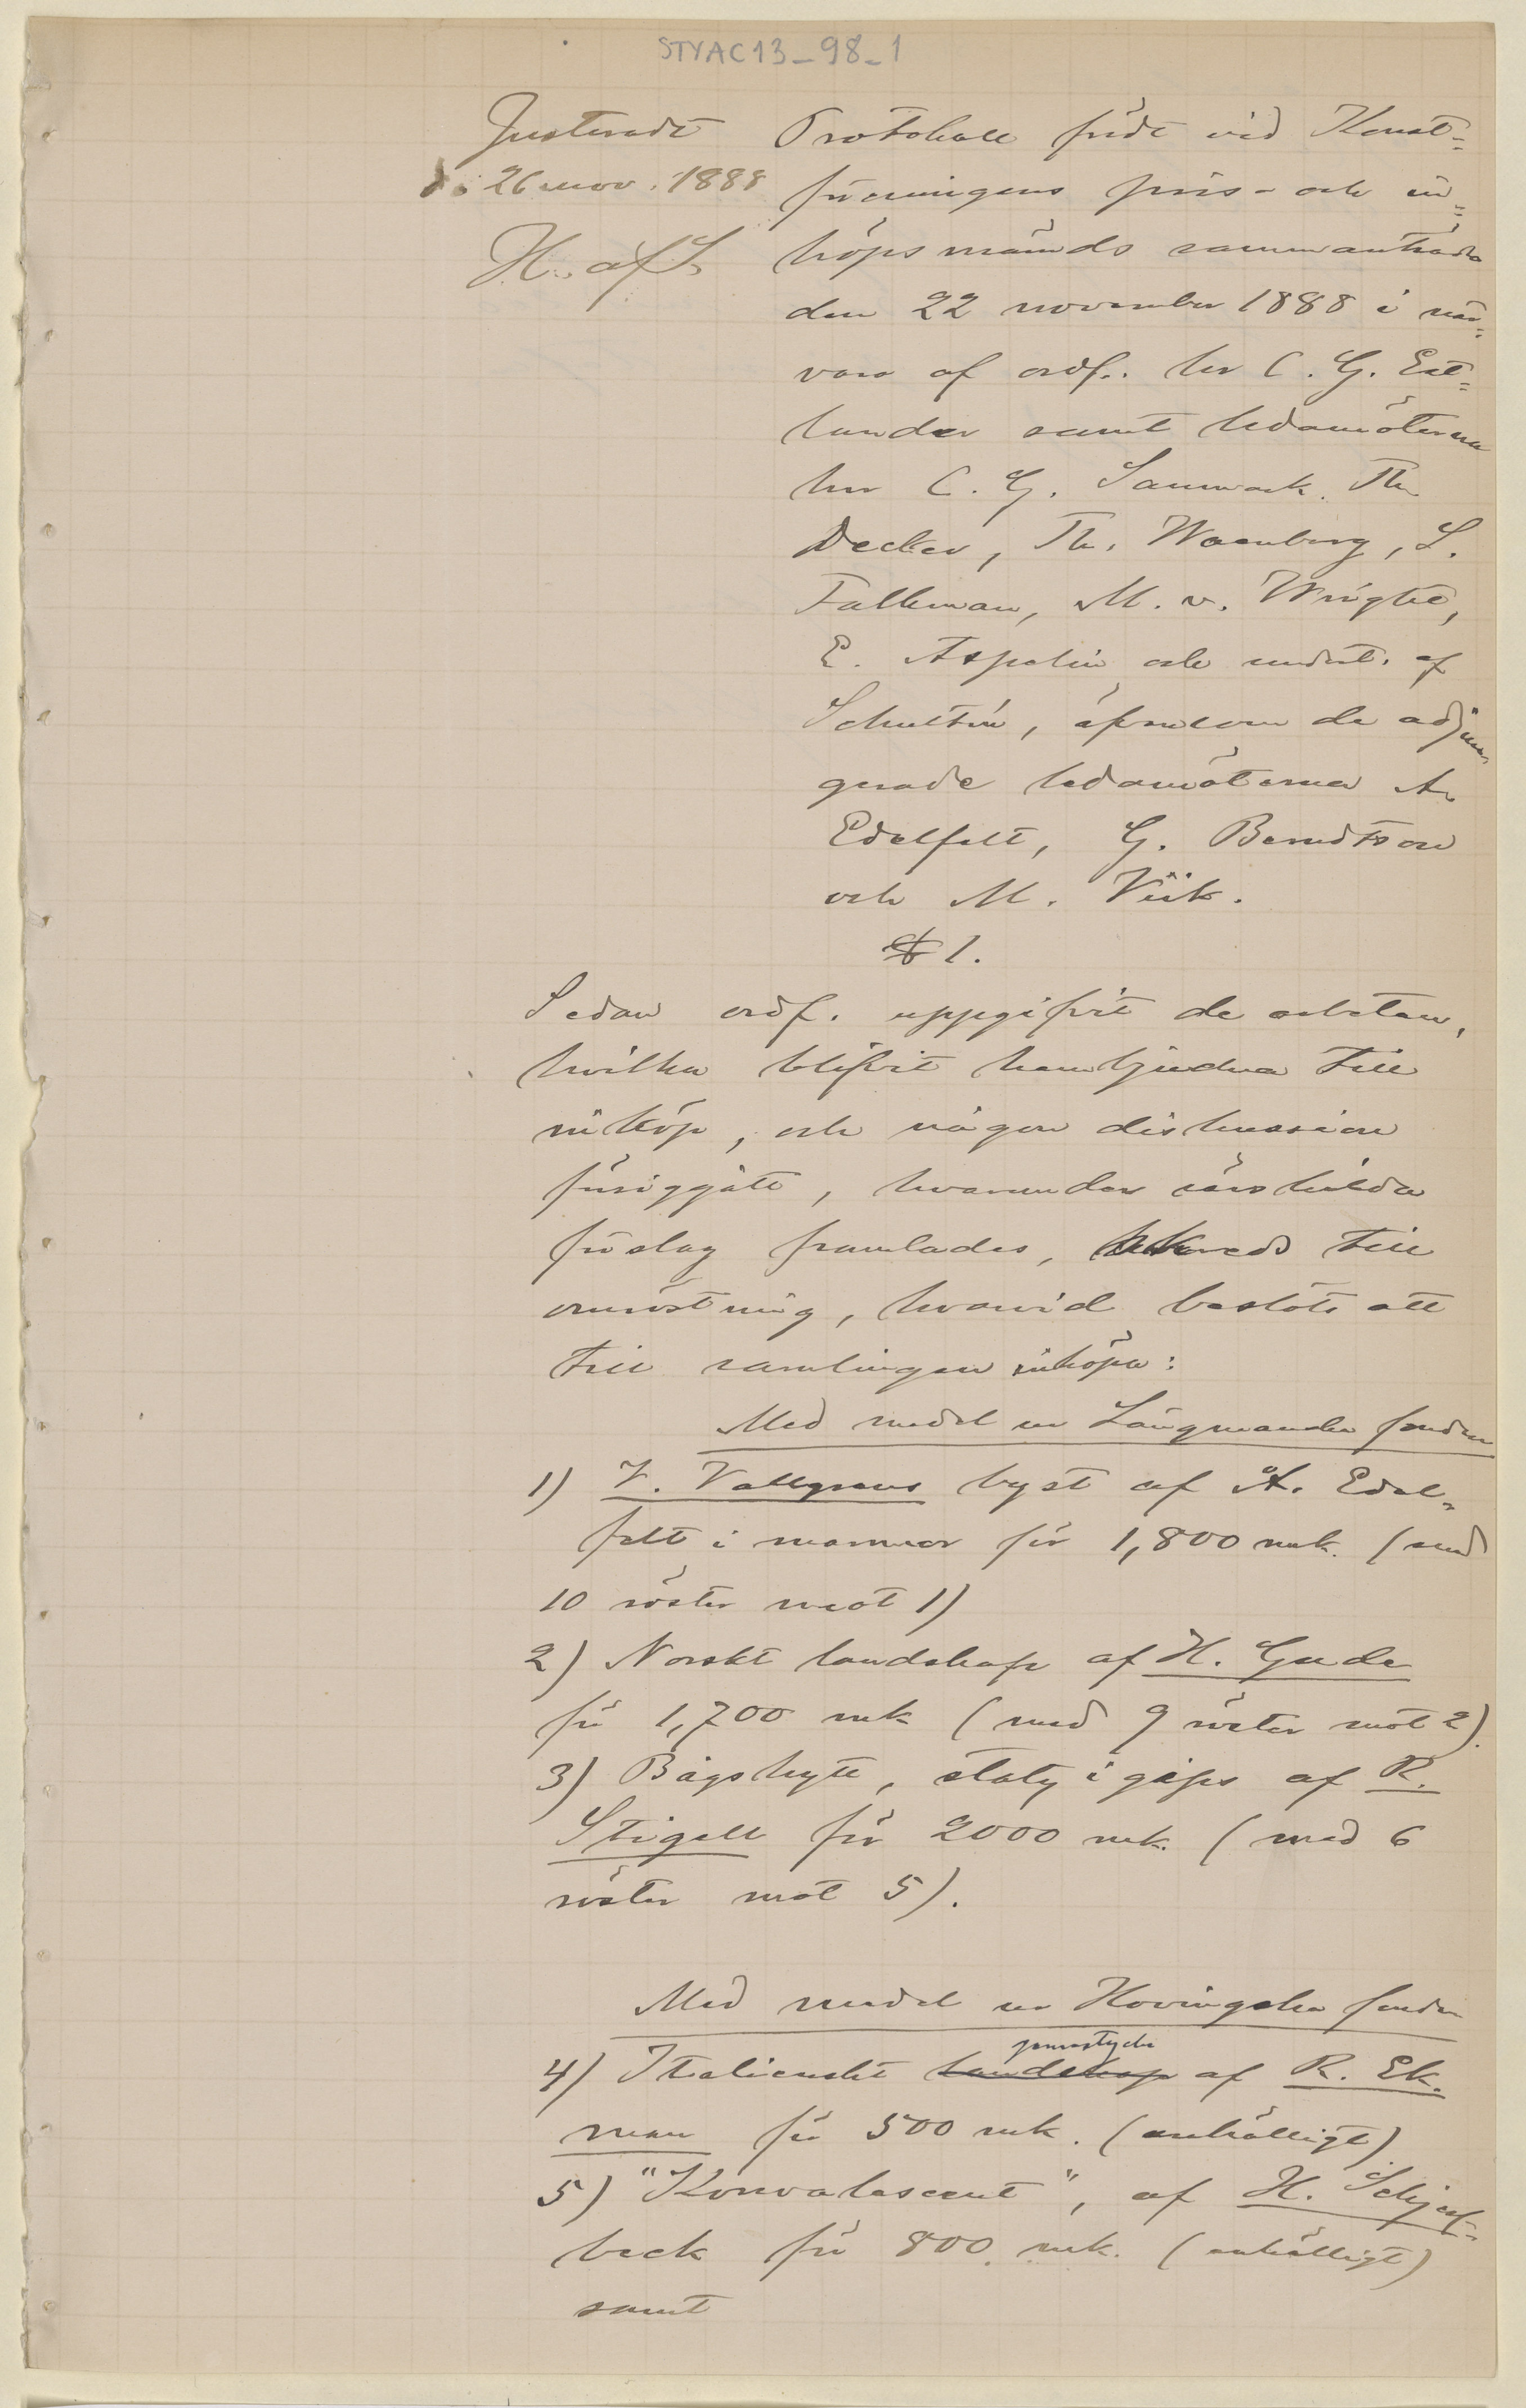 STYAC13_98_1
Justeradt
d. 26 nov. 1888
H. af S.
Protokoll fördt vid Konst=
föreningens pris- och in=
köpsnämnds sammanträde
den 22 november 1888 i när=
varo af ordf. hr C. G. Est=
lander samt ledamöterna
hrr C. G. Sanmark, Th.
Decker, Th. Waenberg, S.
Falkman, M. v. Wright,
E. Aspelin och undert. af
Schultén, äfvensom de adjun-
gerade ledamöterna A.
Edelfelt, G. Berndtson
och M. Viik.
§ 1.
Sedan ordf. uppgifvit de arbeten,
hvilka blifvit hembjudna till
inköp, och någon diskussion
föregått, hvarunder särskilda
förslag framlades, skreds till
omröstning, hvarvid beslöts att
till samlingen inköpa:
Med medel ur Längmanska fonden
1) V. Vallgrens byst af A. Edel-
felt i marmor för 1,800 mk. (med
10 röster mot 1)
2) Norskt landskap af H. Gude
för 1,700 mk (med 9 röster mot 2).
3) Bågskytt, staty i gips af R.
Stigell för 2000 mk. (med 6
röster mot 5).
Med medel ur Hovingska fonden
genrestycke
4) Italienskt landskap af R. Ek-
man för 500 mk. (enhälligt)
5) "Konvalescent", af H. Schjerf-
beck för 800 mk. (enhälligt)
samt